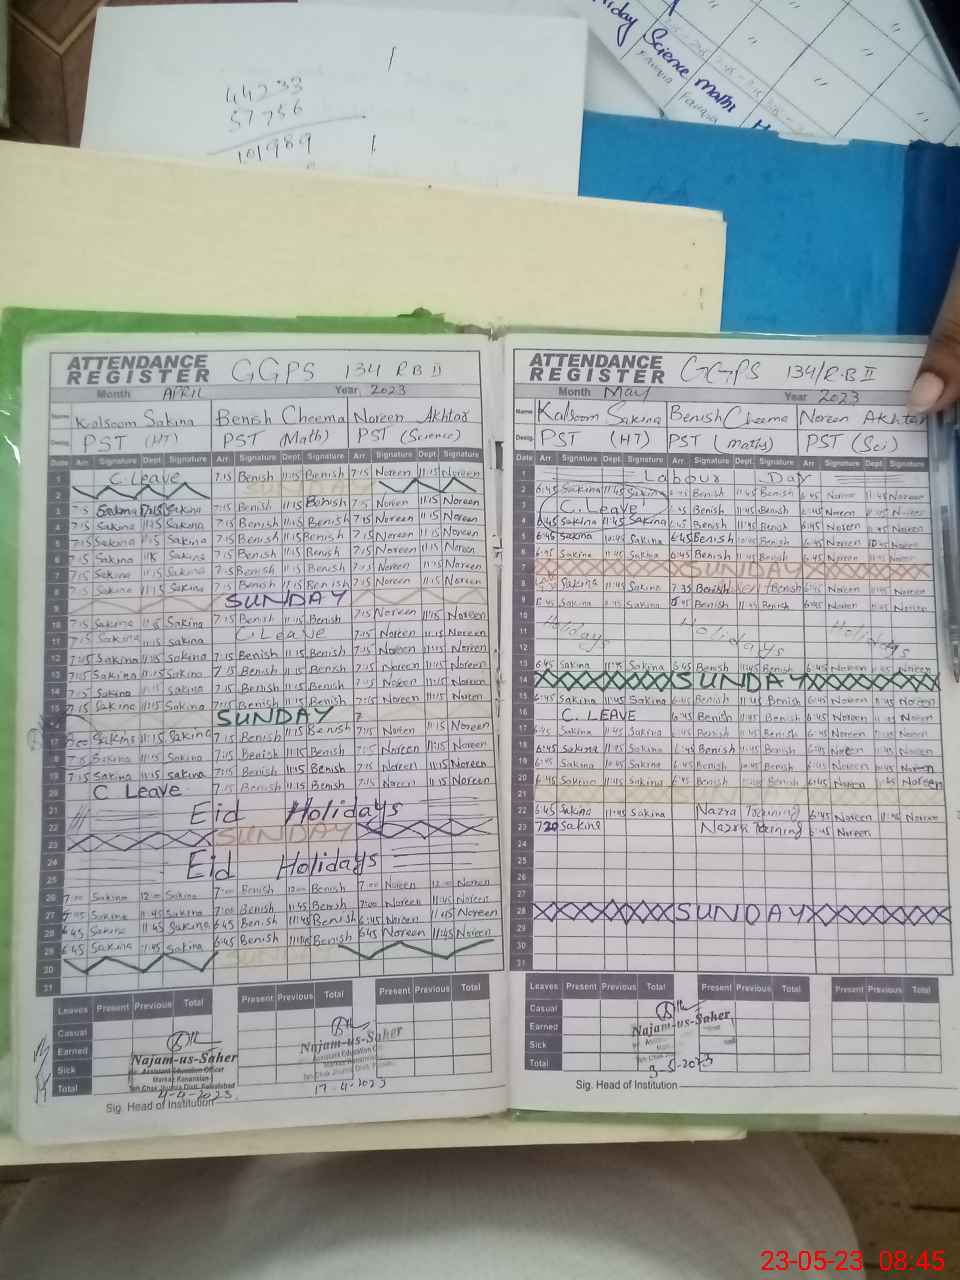 44233
57756
101989
Friday Science maths H
ATTENDANCE REGISTER GGPS 134 RB II
Month APRIL Year 2023
Name Kalsoom Sakina Benish Cheema Noreen Akhtar
Desig. PST (HT) PST (Math) PST (Science)
Date Arr. Signature Dept. Signature Arr. Signature Dept. Signature Arr. Signature Dept. Signature
1 C. Leave 7:15 Benish 11:15 Benish 7:15 Noreen 11:15 Noreen
2 SUNDAY
3 7:15 Sakina 11:15 Sakina 7:15 Benish 11:15 Benish 7:15 Noreen 11:15 Noreen
4 7:15 Sakina 11:15 Sakina 7:15 Benish 11:15 Benish 7:15 Noreen 11:15 Noreen
5 7:15 Sakina 11:15 Sakina 7:15 Benish 11:15 Benish 7:15 Noreen 11:15 Noreen
6 7:15 Sakina Sakina 7:15 Benish 11:15 Benish 7:15 Noreen 11:15 Noreen
7 7:15 Sakina 11:15 Sakina 7:15 Benish 11:15 Benish 7:15 Noreen 11:15 Noreen
8 7:15 Sakina 11:15 Sakina 7:15 Benish 11:15 Benish 7:15 Noreen 11:15 Noreen
9 SUNDAY
10 7:15 Sakina Sakina 7:15 Benish 11:15 Benish 7:15 Noreen 11:15 Noreen
11 7:15 Sakina 11:15 Sakina C. Leave 7:15 Noreen 11:15 Noreen
12 7:15 Sakina 11:15 Sakina 7:15 Benish 11:15 Benish 7:15 Noreen 11:15 Noreen
13 7:15 Sakina 11:15 Sakina 7:15 Benish 11:15 Benish 7:15 Noreen 11:15 Noreen
14 7:15 Sakina Sakina 7:15 Benish 11:15 Benish 7:15 Noreen 11:15 Noreen
15 7:15 Sakina 11:15 Sakina 7:15 Benish 11:15 Benish 7:15 Noreen 11:15 Noreen
SUNDAY
17 Sakina 11:15 Sakina 7:15 Benish 11:15 Benish 7:15 Noreen 11:15 Noreen
18 7:15 Sakina 11:15 Sakina 7:15 Benish 11:15 Benish Noreen 11:15 Noreen
19 7:15 Sakina 11:15 Sakina 7:15 Benish 11:15 Benish 7:15 Noreen 11:15 Noreen
20 C Leave 7:15 Benish 11:15 Benish 7:15 Noreen 11:15 Noreen
21 Eid Holidays
22
23 SUNDAY
24 Eid Holidays
25
26 7:00 Sakina 12:00 Sakina 7:00 Benish 12:00 Benish 7:00 Noreen 12:00 Noreen
27 Sakina 11:45 Sakina 7:00 Benish 11:45 Benish 7:00 Noreen 11:45 Noreen
28 6:45 Sakina 11:45 Sakina 6:45 Benish 11:45 Benish 6:45 Noreen 11:45 Noreen
29 6:45 Sakina 11:45 Sakina 6:45 Benish 11:45 Benish 6:45 Noreen 11:45 Noreen
30 SUNDAY
31
Leaves Present Previous Total Present Previous Total Present Previous Total
Casual
Earned
Sick
Total
Najam-us-Saher
Assistant Education Officer
Markaz Kanawian
Teh Chak Jhumra Distt. Faisalabad
4-4-2023
Najam-us-Saher
Assistant Education
17-4-2023
Sig. Head of Institution
ATTENDANCE REGISTER GGPS 134/R-B II
Month May Year 2023
Name Kalsoom Sakina Benish Cheema Noreen Akhtar
Desig. PST (HT) PST (maths) PST (Sci)
Date Arr. Signature Dept. Signature Arr. Signature Dept. Signature Arr. Signature Dept. Signature
1 Labour Day
2 6:45 Sakina 11:45 Sakina Benish 11:45 Benish 6:45 Noreen 11:45 Noreen
3 C. Leave 6:45 Benish 11:45 Benish 6:45 Noreen Noreen
4 6:45 Sakina 11:45 Sakina 6:45 Benish 11:45 Benish 6:45 Noreen Noreen
5 6:45 Sakina 10:45 Sakina 6:45 Benish 10:45 Benish 6:45 Noreen 10:45 Noreen
6 6:45 Sakina 11:45 Sakina 6:45 Benish 11:45 Benish 6:45 Noreen Noreen
7 SUNDAY
8 Sakina 11:45 Sakina 7:35 Benish Benish 6:45 Noreen 11:45 Noreen
9 6:45 Sakina 11:45 Sakina 6:45 Benish 11:45 Benish 6:45 Noreen Noreen
10
11 Holidays Holidays Holidays
12
13 6:45 Sakina 11:45 Sakina 6:45 Benish 11:45 Benish 6:45 Noreen Noreen
14 SUNDAY
15 6:45 Sakina 11:45 Sakina 6:45 Benish 11:45 Benish 6:45 Noreen 11:45 Noreen
16 C. LEAVE 6:45 Benish 11:45 Benish 6:45 Noreen 11:45 Noreen
17 6:45 Sakina 11:45 Sakina 6:45 Benish 11:45 Benish 6:45 Noreen 11:45 Noreen
18 6:45 Sakina 11:45 Sakina 6:45 Benish 11:45 Benish 6:45 Noreen 11:45 Noreen
19 6:45 Sakina 10:45 Sakina 6:45 Benish 10:45 Benish 6:45 Noreen 10:45 Noreen
20 6:45 Sakina 11:45 Sakina 6:45 Benish Benish 6:45 Noreen Noreen
21 SUNDAY
22 6:45 Sakina 11:45 Sakina Nazra Training 6:45 Noreen 11:45 Noreen
23 7:20 Sakina Nazra Training 6:45 Noreen
24
25
26
27
28 SUNDAY
29
30
31
Leaves Present Previous Total Present Previous Total Present Previous Total
Casual
Earned
Sick
Total
Najam-us-Saher
3-5-2023
Sig. Head of Institution
23-05-23 08:45